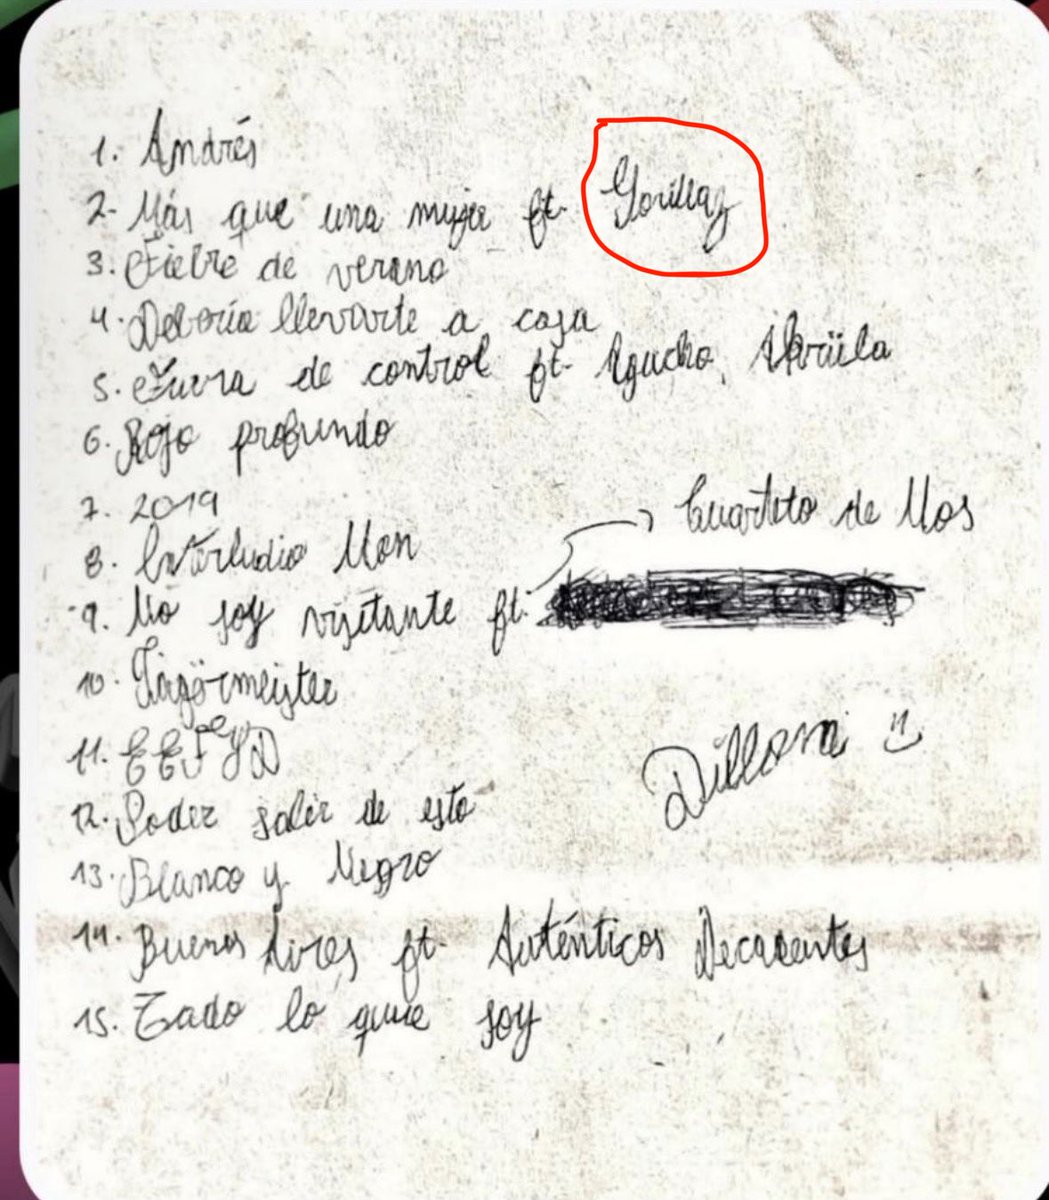 1. Andrés
2. Más que una mujer ft. Gorillaz
3. Fiebre de verano
4. Debería llevarte a casa
5. Fuera de control ft. Agucho,
6. Rojo profundo
7. 2019
8. Interludio Mon
Cuarteto de Nos
9. No soy visitante ft.
10. Jägërmeister
11.
Dillom
12. Poder salir de esto
13. Blanco y Negro
14. Buenos Aires ft. Auténticos Decadentes
15. Todo lo que soy